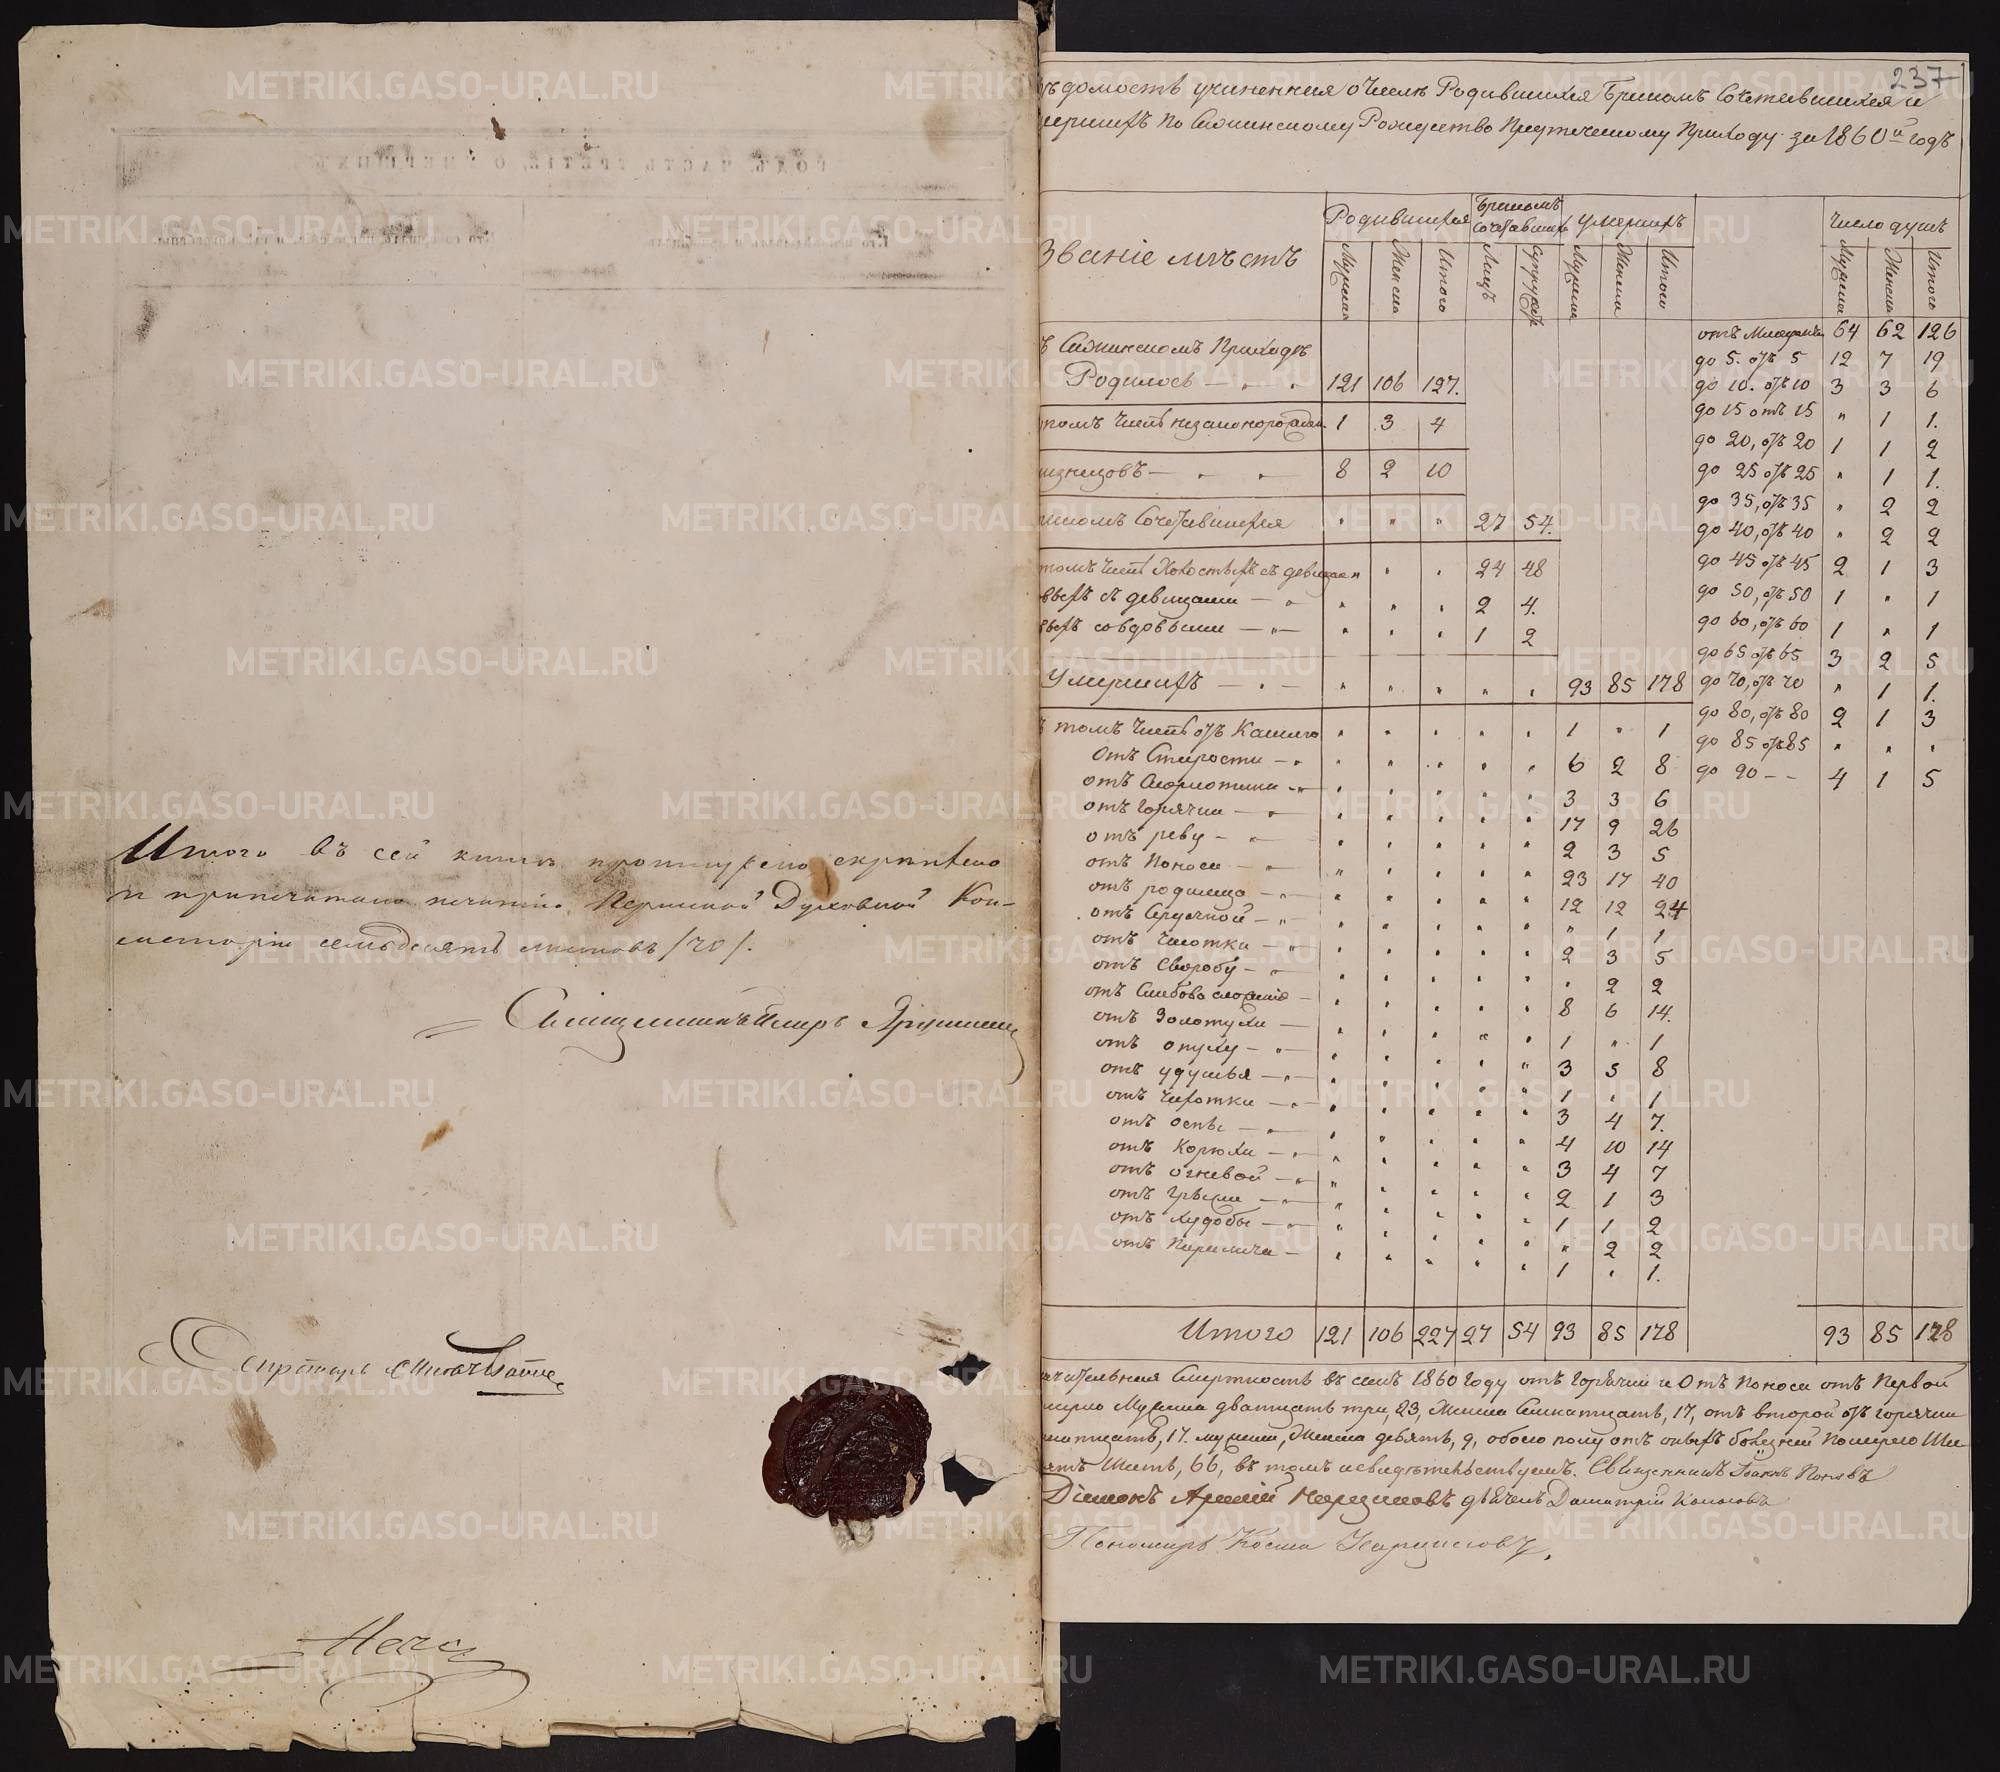 Итого въ сей книгѣ прошнурено скрѣплено
и припечатано печатью Пермской Духовной Кон-
систоріи семьдесятъ листовъ /70/.
Секретарь
237
ѣдомость учиненная о числѣ Родившихся Бракомъ Сочетавшихся и
мершихъ по Сажинскому Рождество Предтеченскому Приходу за 1860й годъ
Званіе мѣстъ
Родившихся
Бракомъ сочетавших
умершихъ
Число душъ
Мужеска
Женска
Итого
Лицъ
Мужеска
Женска
Итого
Мужеска
Женска
Итого
ъ Сажинскомъ Приходѣ
Родилось — „ „ 121 106 127.
томъ числѣ незаконорожден. 1 3 4
изнецовъ — „ „ 8 2 10
ракомъ Сочетавшихся „ „ „ 27 54.
томъ числѣ Холостыхъ съ девицами „ „ „ 24 48
овыхъ съ девицами — „ „ „ „ 2 4.
выхъ со вдовыми — „ — „ „ „ 1 2
Умершихъ — „ — „ „ „ „ „ 93 85 178
ъ томъ числѣ отъ Кашлю „ „ „ „ „ 1 „ 1
отъ Старости — „ „ „ „ „ „ 6 2 8
отъ „ „ „ „ „ 3 3 6
отъ Горячки — „ „ „ „ „ „ 17 9 26
отъ реву — „ — „ „ „ „ „ 2 3 5
отъ Поноса — „ — „ „ „ „ „ 23 17 40
отъ родимца — „ — „ „ „ „ „ 12 12 24
отъ — „ — „ „ „ „ „ „ 1 1
отъ Чахотки — „ — „ „ „ „ „ 2 3 5
отъ — „ — „ „ „ „ „ „ 2 2
отъ Слабова сложенія — „ „ „ „ „ 8 6 14.
отъ Золотухи — „ „ „ „ „ 1 „ 1
отъ опуху — „ — „ „ „ „ „ 3 5 8
отъ удушья — „ — „ „ „ „ „ 1 „ 1
отъ Чахотки — „ — „ „ „ „ „ 3 4 7.
отъ оспы — „ — „ „ „ „ „ 4 10 14
отъ Корюхи — „ — „ „ „ „ „ 3 4 7
отъ огневой — „ — „ „ „ „ „ 2 1 3
отъ грыжи — „ — „ „ „ „ „ 1 1 2
отъ худобы — „ — „ „ „ „ „ „ 2 2
отъ — „ „ „ „ „ 1 „ 1.
Итого 121 106 227 27 54 93 85 178
отъ Младенч 64 62 126
до 5. отъ 5 12 7 19
до 10. отъ 10 3 3 6
до 15 отъ 15 „ 1 1.
до 20, отъ 20 1 1 2
до 25 отъ 25 „ 1 1.
до 35, отъ 35 „ 2 2
до 40, отъ 40 „ 2 2
до 45 отъ 45 2 1 3
до 50, отъ 50 1 „ 1
до 60, отъ 60 1 „ 1
до 65 отъ 65 3 2 5
до 70, отъ 70 „ 1 1.
до 80, отъ 80 2 1 3
до 85 отъ 85 „ „ „
до 90 — — 4 1 5
93 85 178
ачительная Смертность въ семъ 1860 году отъ Горячки и Отъ Поноса отъ Первой
мерло Мужеска дватцать три, 23, Женска Семнатцать, 17, отъ второй отъ горячки
натцать, 17. мужеска, Женска девять, 9, обоего полу отъ оныхъ болезней Померло Ше-
ятъ Шесть, 66, въ томъ и свидѣтельствуемъ. Священникъ Іоаннъ Поповъ
Діаконъ дьячекъ Димитрій
Пономарь Косма
METRIKI.GASO-URAL.RU